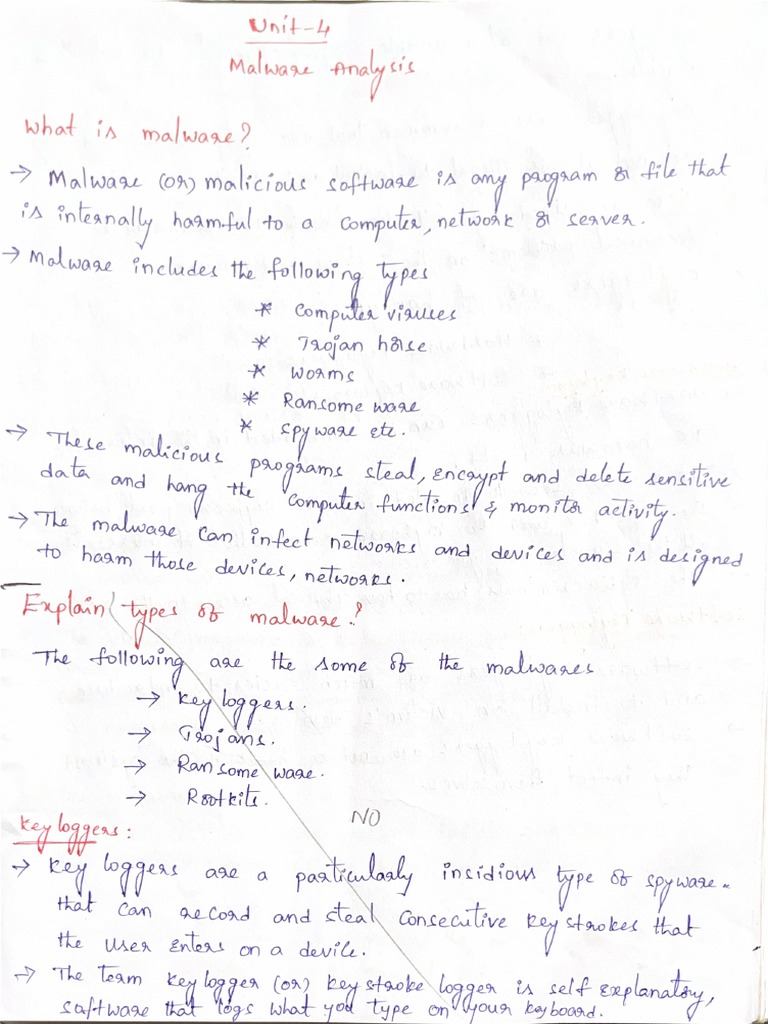 Unit-4
Malware Analysis
What is malware?
→ Malware (or) malicious software is any program or file that
is internally harmful to a computer, network or server.
→ Malware includes the following types
* Computer viruses
* Trojan horse
* worms
* Ransome ware
* spyware etc.
→ These malicious programs steal, encrypt and delete sensitive
data and hang the computer functions & monitor activity.
→ The malware can infect networks and devices and is designed
to harm those devices, networks.
Explain types of malware?
The following are the some of the malwares
→ key loggers.
→ Trojans.
→ Ransome ware.
→ Rootkits.
NO
key loggers:
→ key loggers are a particularly insidious type of spyware.
that can record and steal consecutive key strokes that
the user enters on a device.
→ The term key logger (or) key stroke logger is self explanatory,
software that logs what you type on your keyboard.